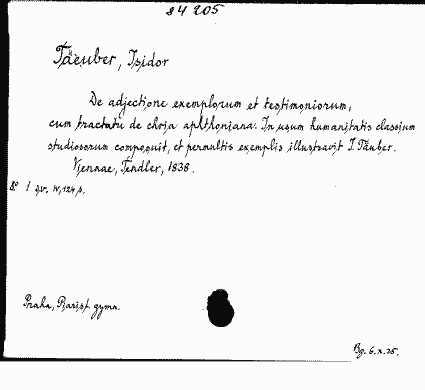 84 205
Täuber, Isidor
De adjectione exemplorum et testimoniorum,
cum tractatu de chria aphthoniana. In usum humanitatis classium
studiosorum composuit, et permultis exemplis illustravit I. Täuber.
Viennae, Tendler, 1838.
8° 1 sv. IV, 124 s.
Praha, Piarist. gymn.
Bg. 6.X.25.